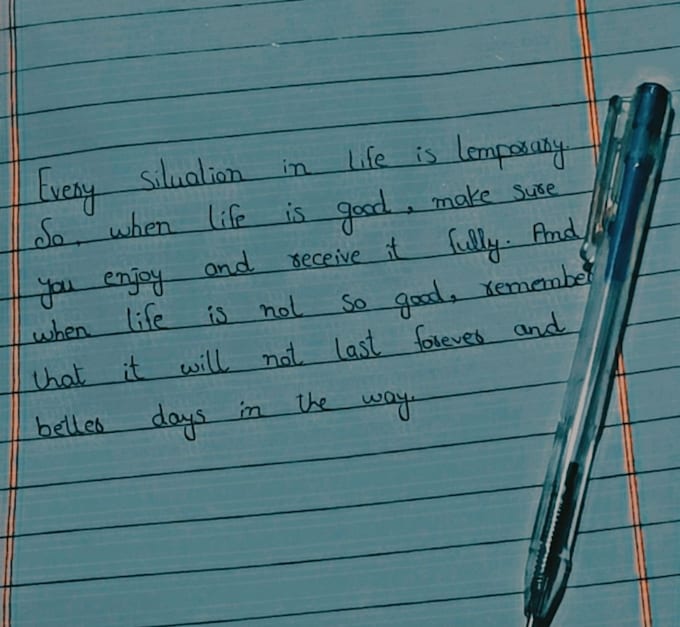 Every situation in life is temporary.
So, when life is good, make sure
you enjoy and receive it fully. And
when life is not so good, remember
that it will not last forever and
better days in the way.